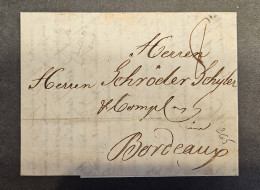 Herren
Herren Schröder Schyler
& Comp
Bordeaux